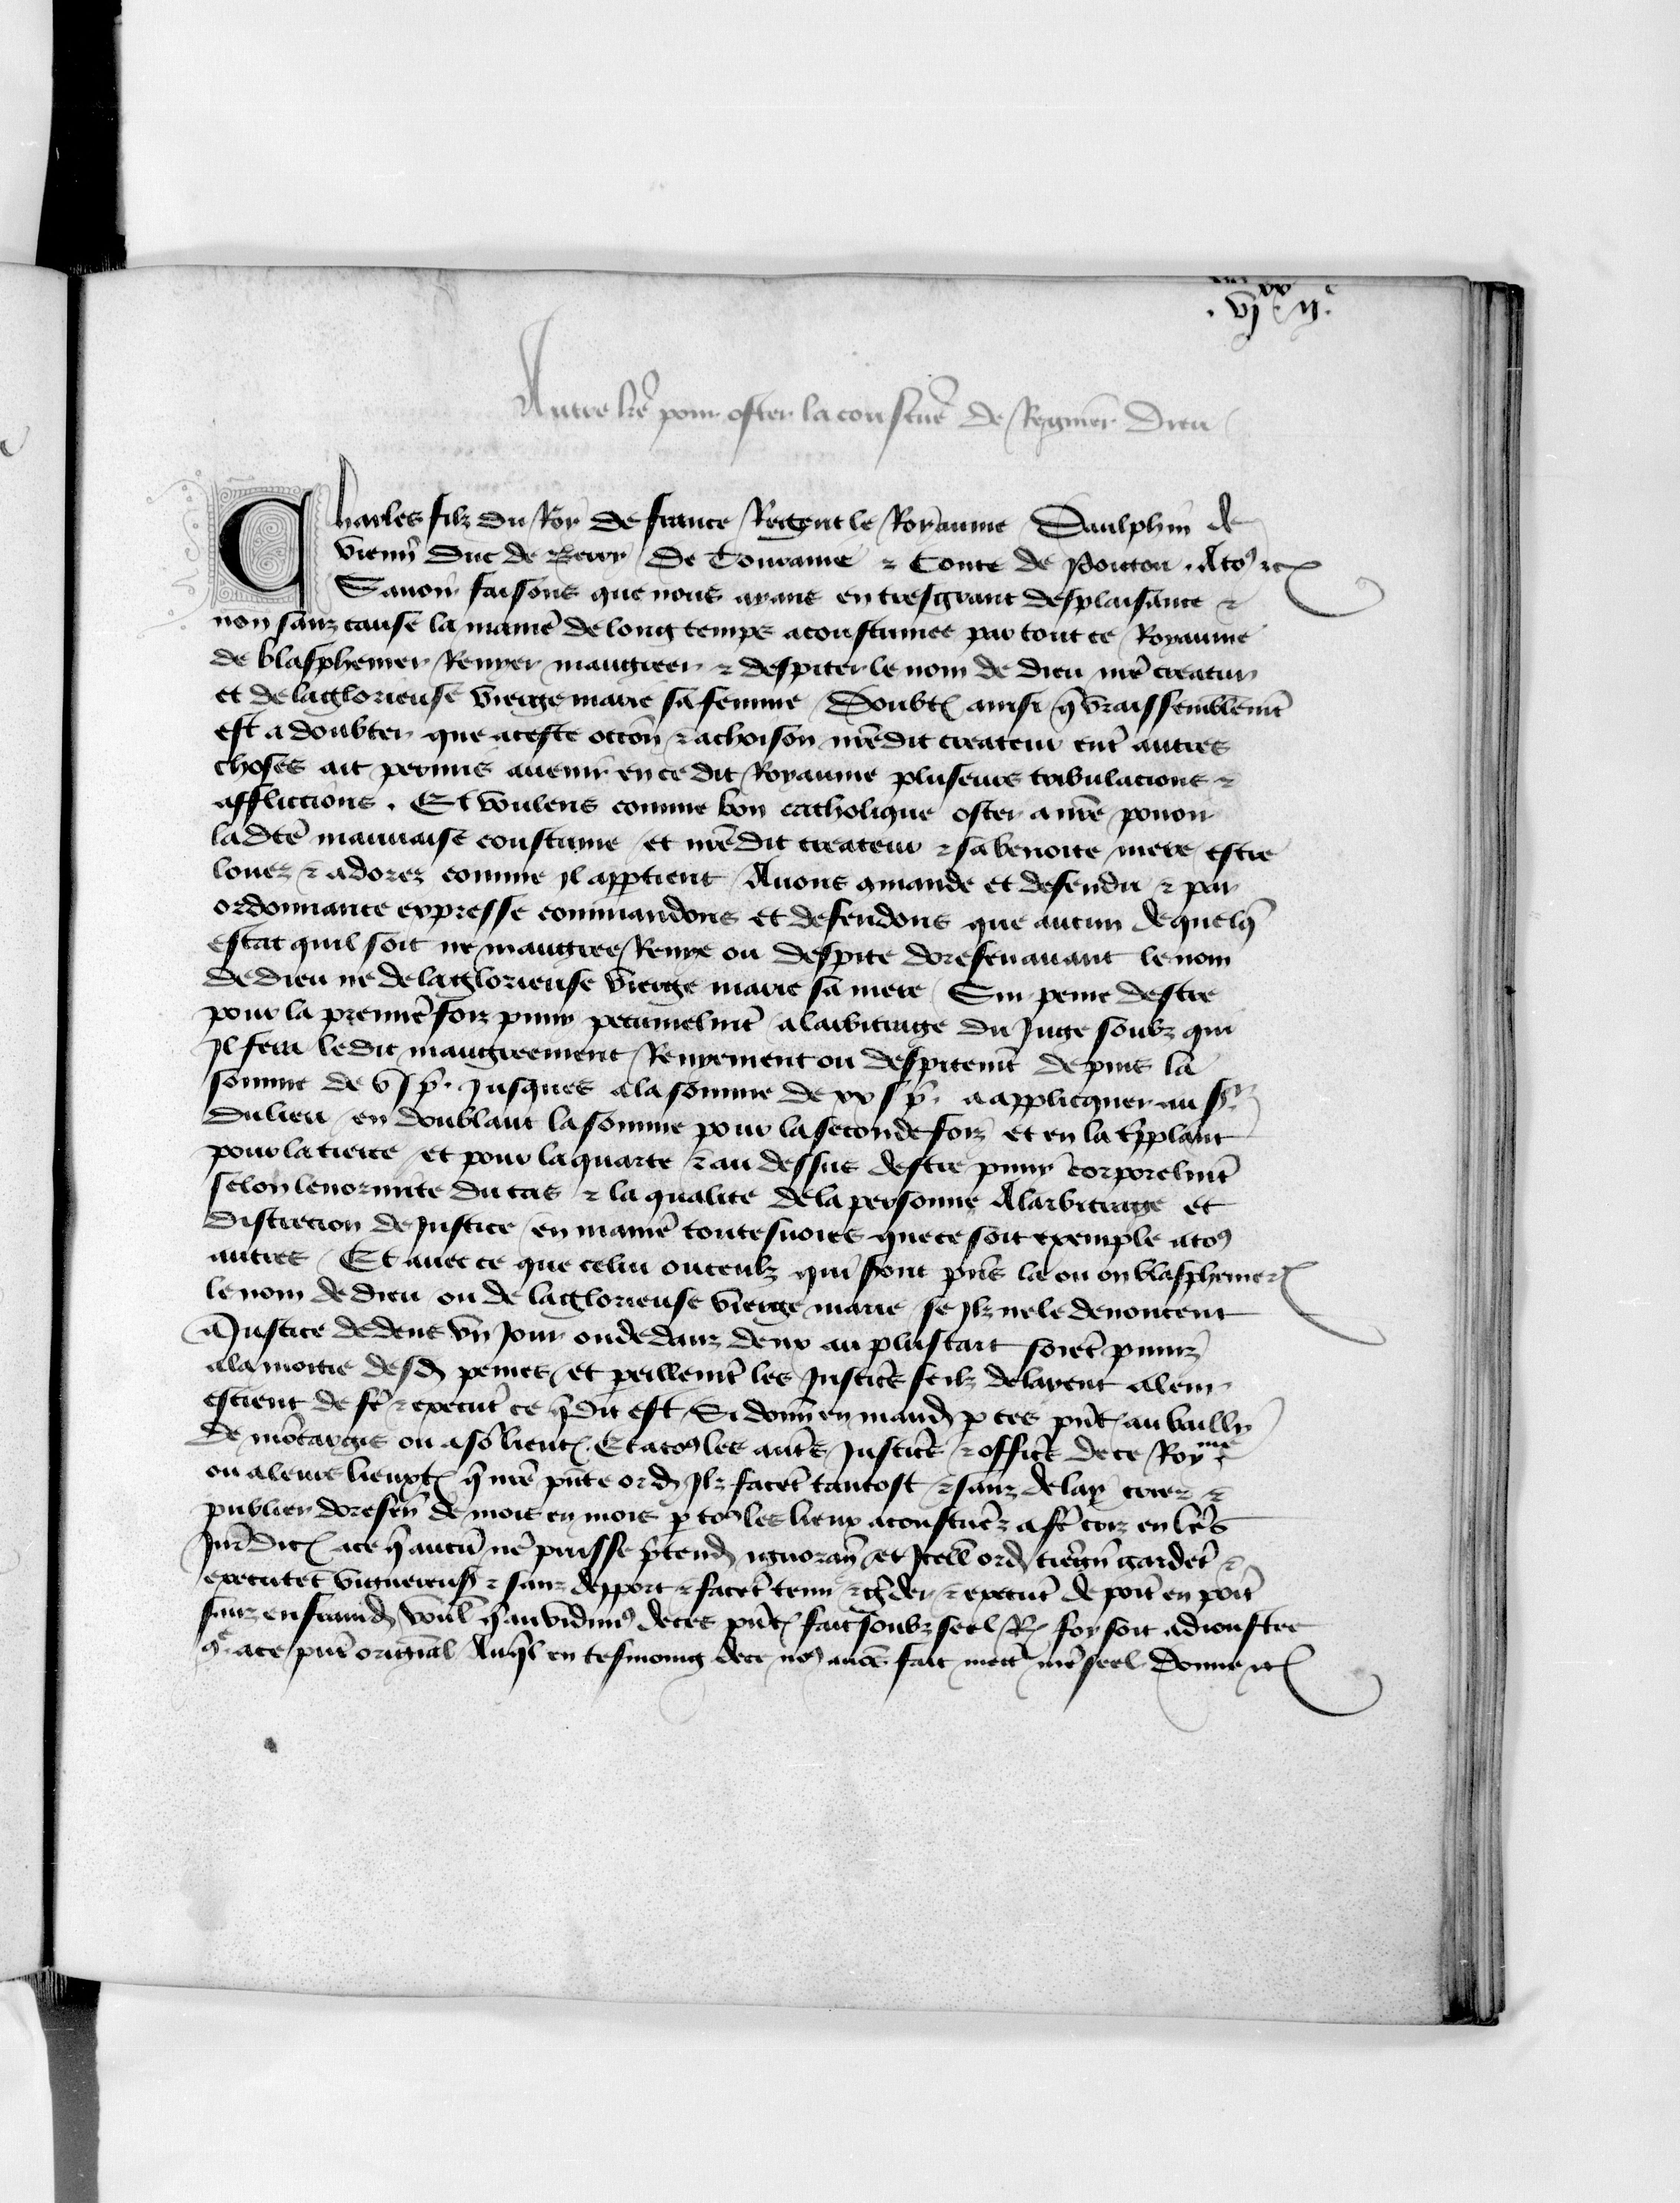 . vj xx ij.
Autre lrẽ pour oster la coustũe de Regnier Dieu
Charles filz du Roy de france Regent le Royaume Daulphin de
viennˉ Duc de Berry De Touraine ⁊ Conte de Poictou . Atoꝰ ⁊c
Sauoir faisons que nous ayans en tresgrant desplaisance ⁊
non sanz cause la maniẽ de long temps acoustumee par tout ce Royaume
de blasphemer Renyer maugreer ⁊ despiter le nom de dieu nrẽ creatur
et de la glorieuse vierge marie sa femme Doubtˉ ainsi q̃ vraissemblemẽt
est a doubter que a ceste occõn ⁊ achoison nrẽ dit createur entˉ autres
choses ait permis auenir en ce dit Royaume pluseurs tribulacions ⁊
afflictions . Et voulens comme bon catholique oster a nrẽ pouoir
ladtẽ mauuaise coustume et nrẽ dit createur ⁊ sa benoite mere estre
louez ⁊ adorez comme il appꝑtient Auons ꝯmande et defendu ⁊ par
ordonnance expresse commandons et defendons que aucun de quelq̃
estat quil soit ne maugree Renye ou despite doresenauant le nom
de dieu ne de la glorieuse vierge marie sa mere Sur peine destre
pour la premiẽ foiz puny pecunielmẽt a larbitrage du Juge soubz qui
Il fera ledit maugreement Renyement ou despitemẽt depuis la
somme de v s p̃. Jusques a la somme de xx s p̃. a applicquer au sr
du lieu en doublant la somme pour la seconde foiz et en la tˉplant
pour la tierce et pour la quarte ⁊ au dessus destre puny corporelmẽt
selon lenormite du cas ⁊ la qualite de la personne A larbitrage et
discrecion de Justice en maniẽ toutesuoies que ce soit exemple a toꝰ
autres Et auec ce que celui ou ceulx qui sont pñs la ou on blasphemerˉ
le nom de dieu ou de la glorieuse vierge marie se Ilz ne le denoncent
a Justice dedens vn Jour ou dedanz deux au plus tart soiẽt puniz
a la moitie desd peines et pareillemẽt les Justicˉs se ilz delayent a leur
escient de fˉe ⁊ executˉ ce q̃ dit est Si donnˉ en mandˉ ꝑ ces pñtˉ au bailly
de mõtargis ou a son lieutˉ Et a toꝰ les autˉs Justicˉs ⁊ officˉs de ce Royme
ou a leurs lieuxtˉ q̃ nrẽ pñte ordˉ Ilz facẽt tantost ⁊ sanz delay crier ⁊
publier doresẽn de mois en mois ꝑ toꝰ les lieux acoustũez a fˉe criz en lrˉs
Juridicˉ a ce q̃ aucũ ne puisse p̃tendˉ ignorañ et Icell ordˉ tieignˉ gardẽt ⁊
executẽt viguereusˉ ⁊ sanz depport ⁊ facẽt tenir ⁊ gˉder ⁊ executˉ de poĩt en poĩt
sanz enfraindˉ voulˉ q̃ au vidimꝰ de ces pñtˉ fait soubz seel Rˉ foy soit adioustee
ꝯe a ce pñt original Auq̃l en tesmoing de ce noꝰ auõs fait mettˉ nrẽ seel Donne ⁊c